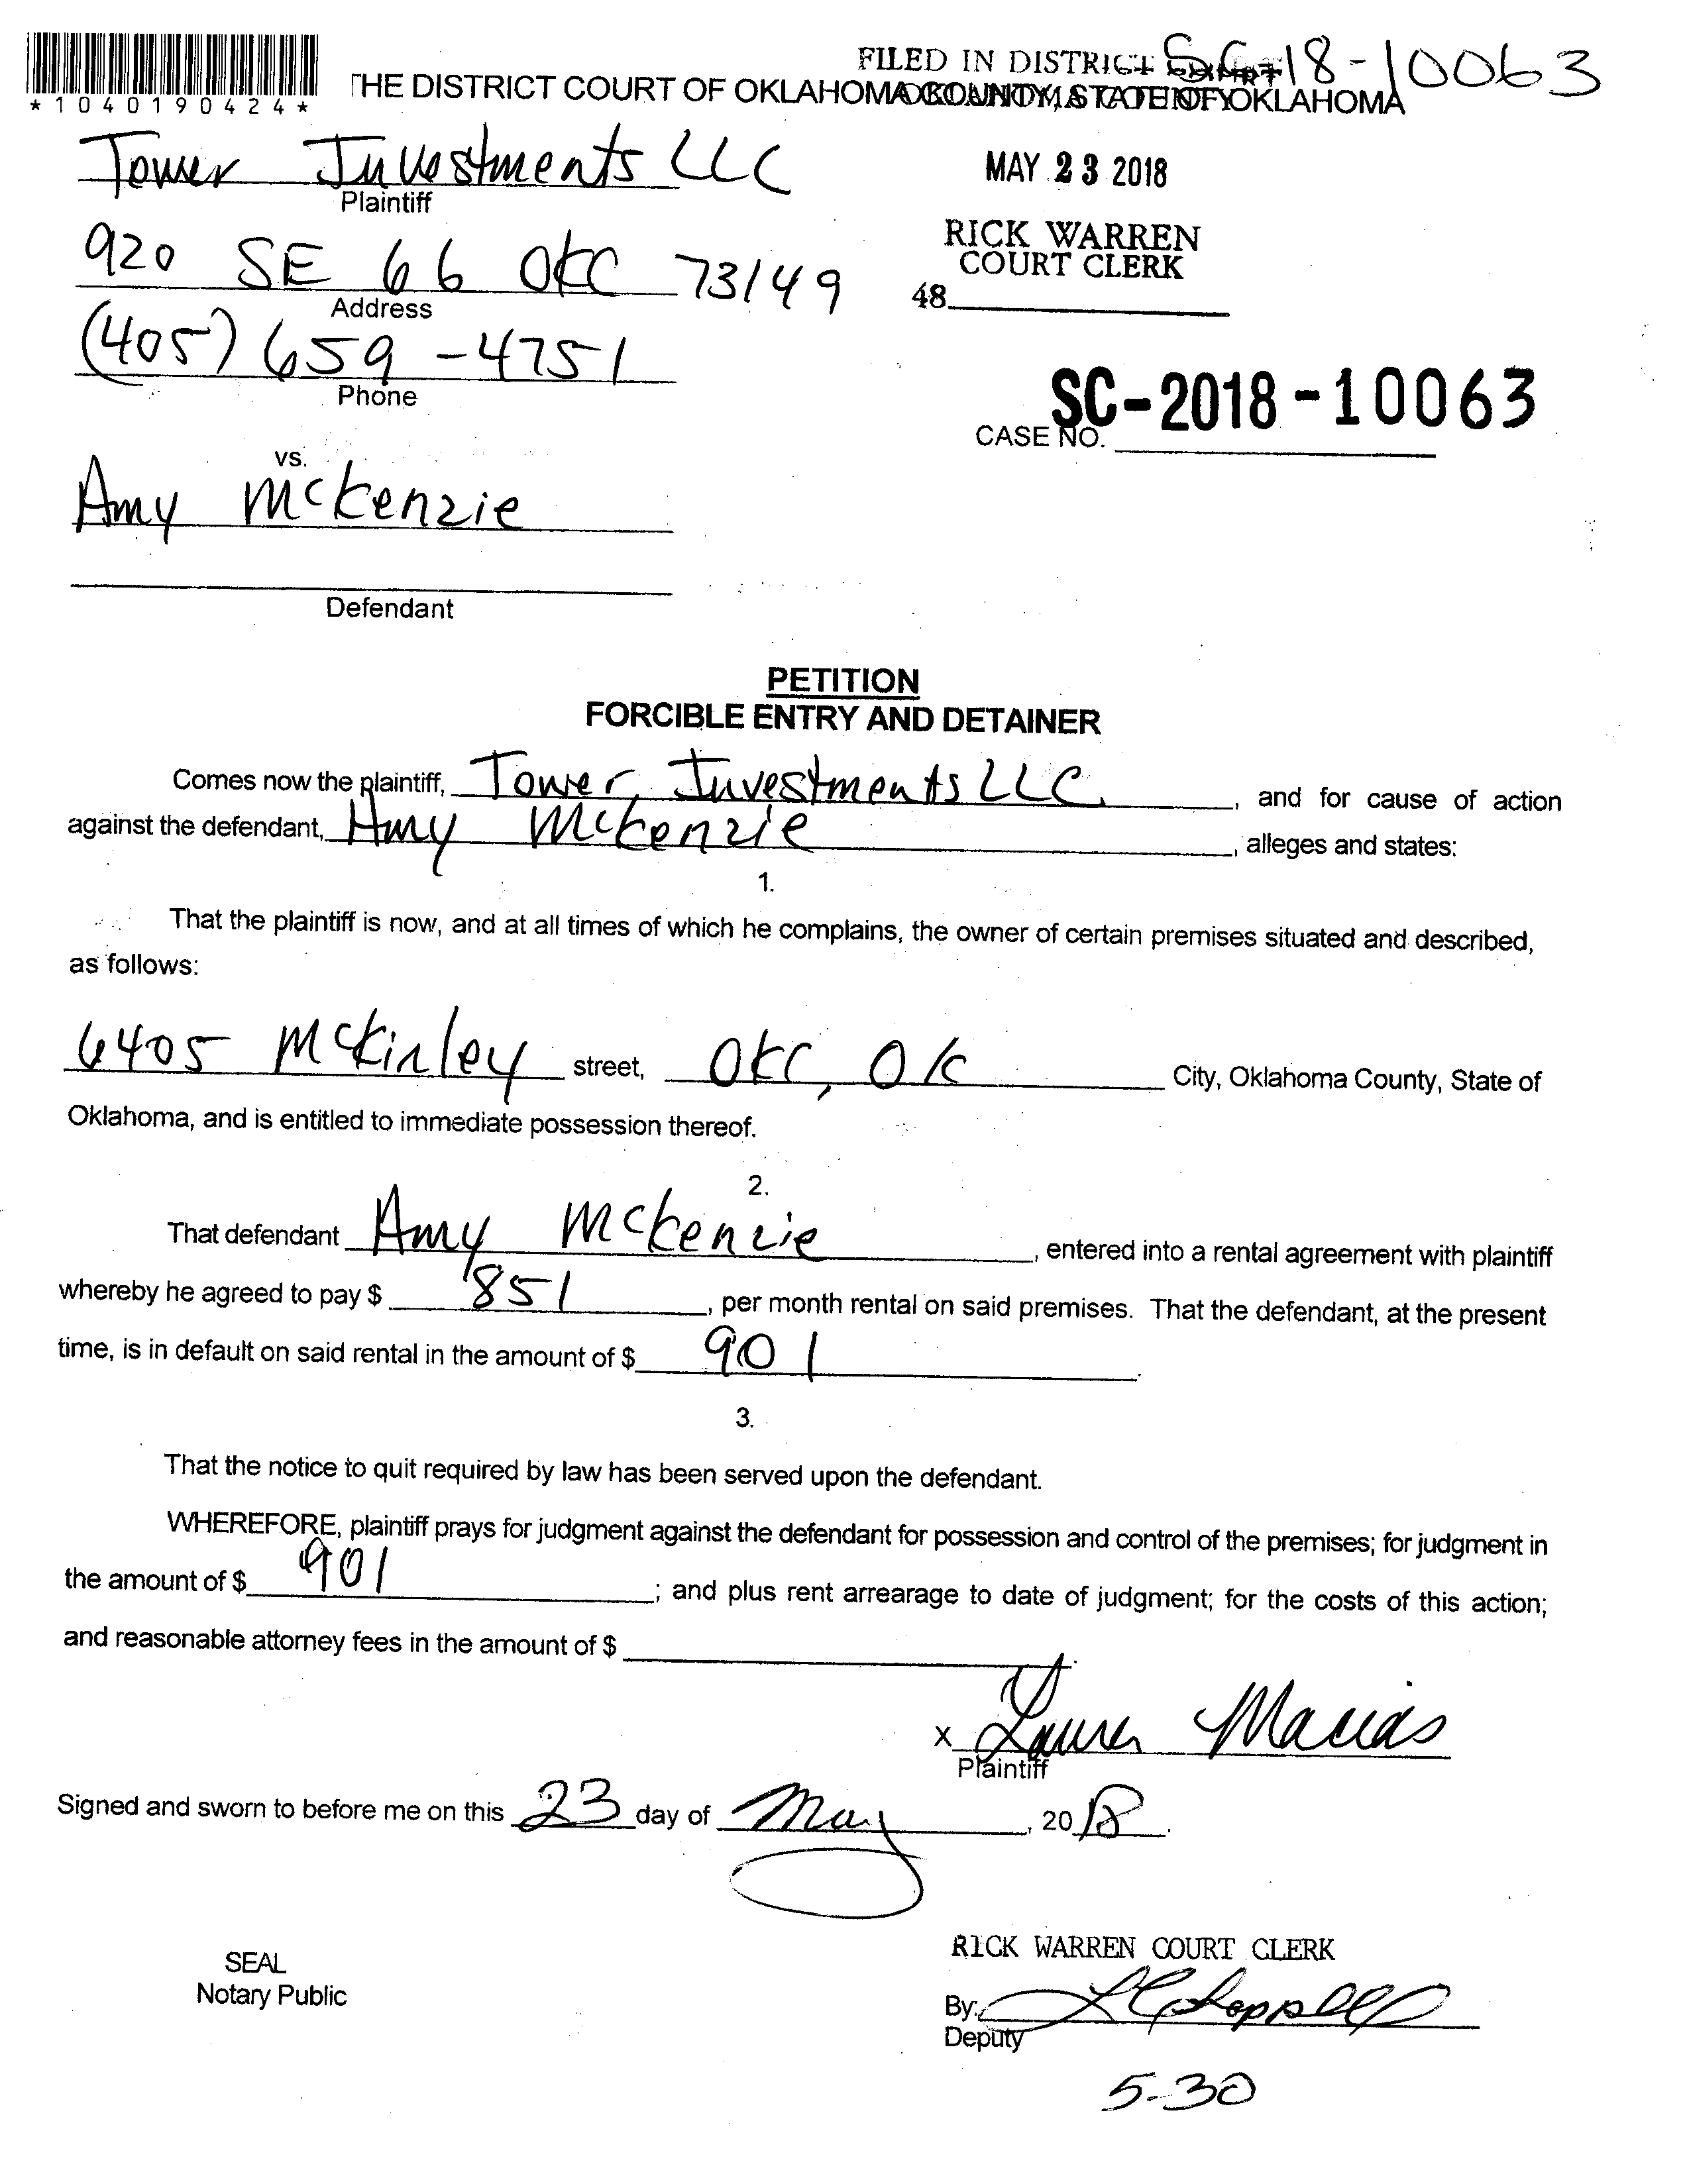 FILED IN DISTRICT COURT
SC-18-10063
*1040190424*
THE DISTRICT COURT OF OKLAHOMA COUNTY, STATE OF OKLAHOMA
OKLAHOMA COUNTY
Tower Investments LLC
Plaintiff
MAY 23 2018
920 SE 66 OKC 73149
Address
RICK WARREN
COURT CLERK
48
(405) 659-4751
Phone
SC-2018-10063
CASE NO.
vs.
Amy McKenzie
Defendant
PETITION
FORCIBLE ENTRY AND DETAINER
Comes now the plaintiff, Tower Investments LLC, and for cause of action
against the defendant, Amy McKenzie, alleges and states:
1.
That the plaintiff is now, and at all times of which he complains, the owner of certain premises situated and described,
as follows:
6405 McKinley street, OKC, OK City, Oklahoma County, State of
Oklahoma, and is entitled to immediate possession thereof.
2.
That defendant Amy McKenzie, entered into a rental agreement with plaintiff
whereby he agreed to pay $ 851, per month rental on said premises. That the defendant, at the present
time, is in default on said rental in the amount of $ 901.
3.
That the notice to quit required by law has been served upon the defendant.
WHEREFORE, plaintiff prays for judgment against the defendant for possession and control of the premises; for judgment in
the amount of $ 901; and plus rent arrearage to date of judgment; for the costs of this action;
and reasonable attorney fees in the amount of $
x Laura Macias
Plaintiff
Signed and sworn to before me on this 23 day of May, 2018.
SEAL
Notary Public
RICK WARREN COURT CLERK
By:
Deputy
5-30